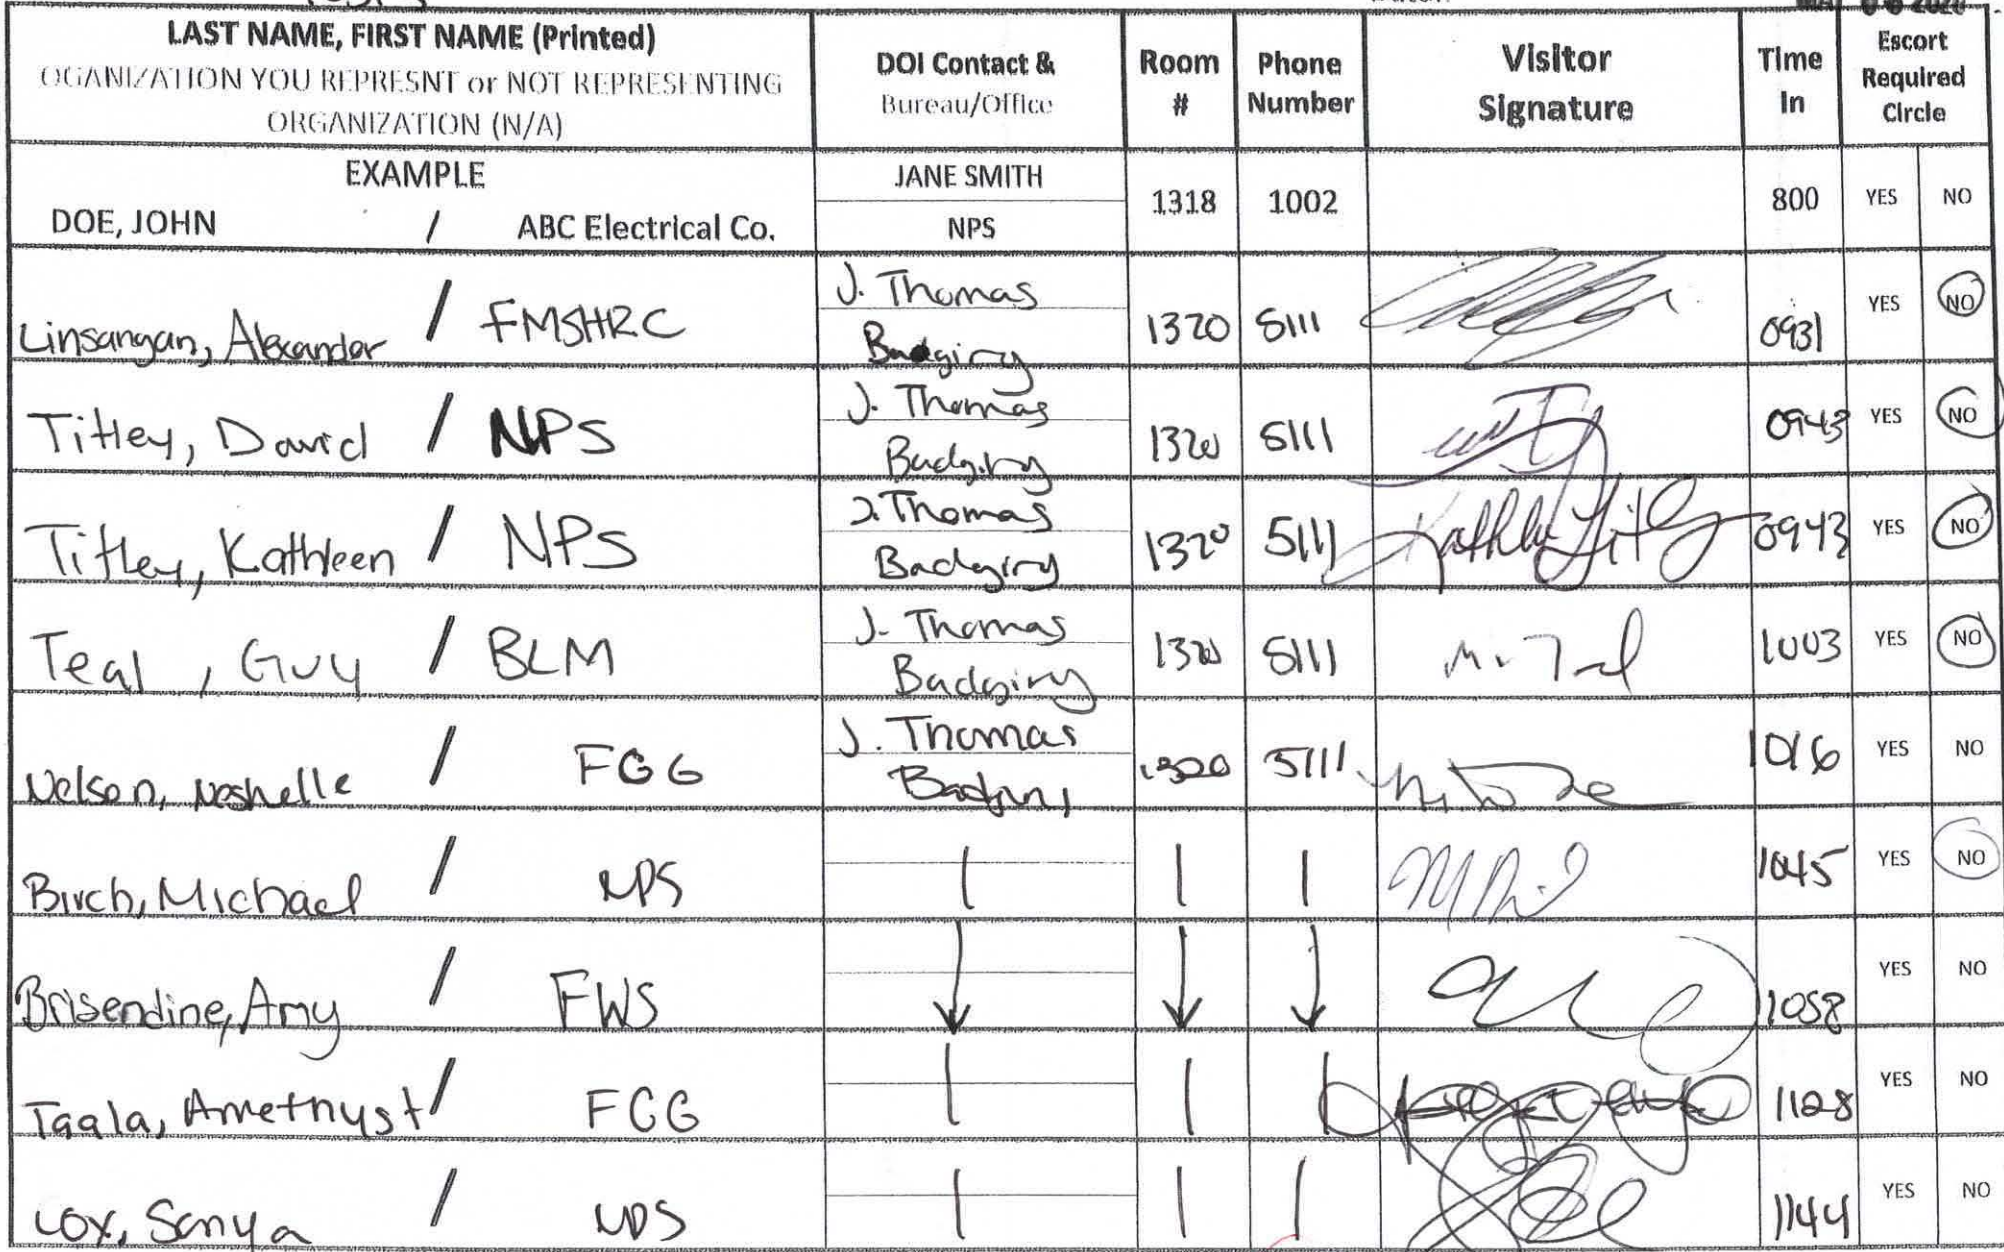 LAST NAME, FIRST NAME (Printed)
OGANIZATION YOU REPRESNT or NOT REPRESENTING
ORGANIZATION (N/A)
DOI Contact &
Bureau/Office
Room
#
Phone
Number
Visitor
Signature
Time
In
Escort
Required
Circle
EXAMPLE
DOE, JOHN / ABC Electrical Co.
JANE SMITH
NPS
1318 1002 800 YES NO
Linsangan, Alexander / FMSHRC
J. Thomas
Badging
1320 5111 0931 YES NO
Titley, David / NPS
J. Thomas
Badging
1320 5111 0943 YES NO
Titley, Kathleen / NPS
J. Thomas
Badging
1320 5111 Kathleen Titley 0943 YES NO
Teal, Guy / BLM
J. Thomas
Badging
1320 5111 1003 YES NO
Nelson, Neshelle / FGG
J. Thomas
Badging
1320 5111 1016 YES NO
Birch, Michael / NPS
1045 YES NO
Brisendine, Amy / FWS
1058 YES NO
Taala, Amethyst / FGG
1128 YES NO
Cox, Sonya / NPS
1144 YES NO